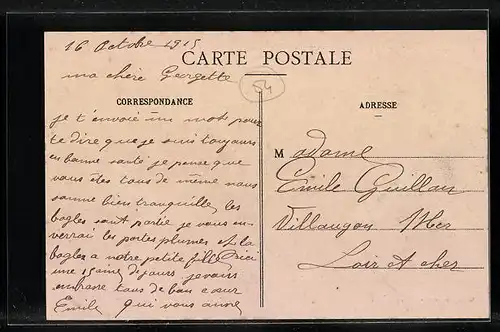 16 Octobre 1915
CARTE POSTALE
ma chère Georgette
54
CORRESPONDANCE
je t'envoie un mot pour
te dire que je suis toujours
en banne santé je pense que
vous êtes tous de même nous
somme bien tranquille, les
bagles sont partie je vous en-
verrai les portes plumes et la
bagles a notre petite fille d'ici
une 15aine de jours je vous
embrasse tous de bon cœur
Emile qui vous aime
ADRESSE
Madame
Emile Guillau
Villaugon Mer
Loir et cher